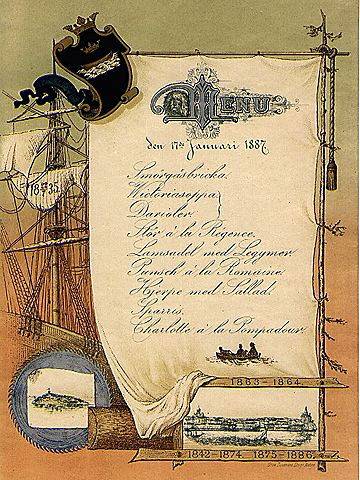 MENU
den 17de Januari 1887.
Smörgåsbricka.
Victoriasoppa.
Darioler.
Stör à la Régence.
Lamsadel med Legymer.
Punsch à la Romaine.
Hjerpe med Sallad.
Sparris.
Charlotte à la Pompadour.
1835.
1863-1864.
1842-1874. 1875-1886.